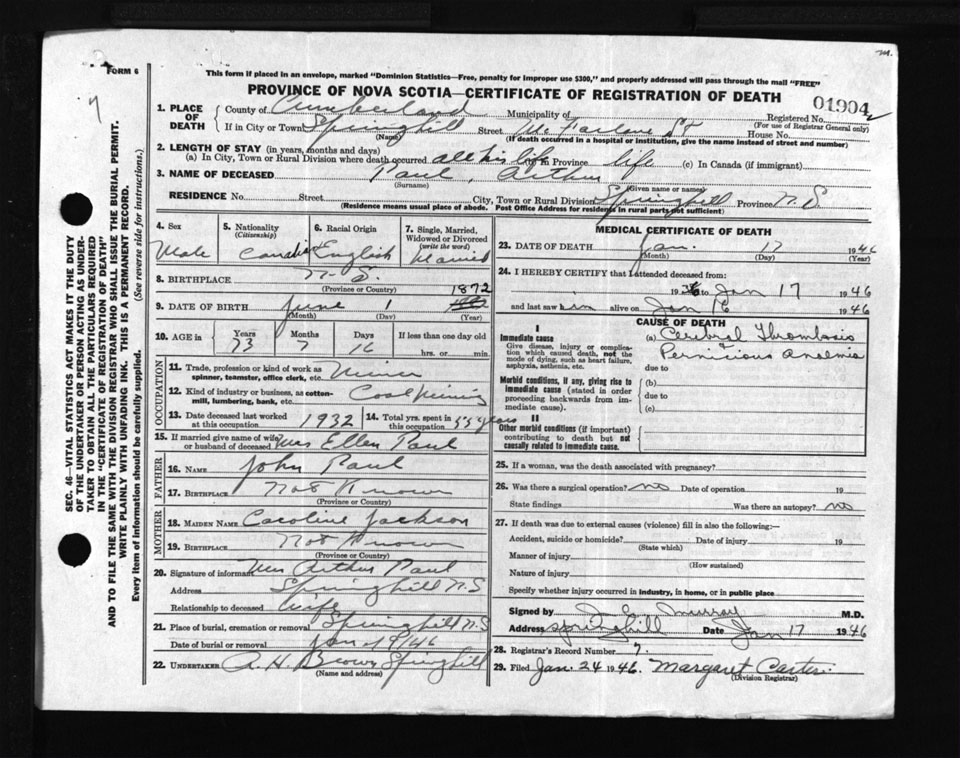 FORM 6
This form if placed in an envelope, marked "Dominion Statistics—Free, penalty for improper use $300," and properly addressed will pass through the mail "FREE"
PROVINCE OF NOVA SCOTIA—CERTIFICATE OF REGISTRATION OF DEATH
01904
1. PLACE OF DEATH County of Cumberland Municipality of Registered No. (For use of Registrar General only)
If in City or Town Springhill (Name) Street McFarlane St House No.
(If death occurred in a hospital or institution, give the name instead of street and number)
2. LENGTH OF STAY (in years, months and days)
(a) In City, Town or Rural Division where death occurred all his life (b) In Province life (c) In Canada (if immigrant)
3. NAME OF DECEASED Paul, Arthur
(Surname) (Given name or names)
RESIDENCE No. Street City, Town or Rural Division Springhill Province N.S
(Residence means usual place of abode. Post Office Address for residents in rural parts not sufficient)
4. Sex Male
5. Nationality (Citizenship)
6. Racial Origin English
7. Single, Married, Widowed or Divorced (write the word) Married
8. BIRTHPLACE N.S.
(Province or Country)
9. DATE OF BIRTH June 1 1872
(Month) (Day) (Year)
10. AGE in Years 73 Months 7 Days 16 If less than one day old hrs. or min.
OCCUPATION
11. Trade, profession or kind of work as spinner, teamster, office clerk, etc. Miner
12. Kind of industry or business, as cotton-mill, lumbering, bank, etc. Coal mining
13. Date deceased last worked at this occupation 1932
14. Total yrs. spent in this occupation 55 years
15. If married give name of wife or husband of deceased Mrs Ellen Paul
FATHER
16. NAME John Paul
17. BIRTHPLACE Not Known
(Province or Country)
MOTHER
18. MAIDEN NAME Caroline Jackson
19. BIRTHPLACE Not Known
(Province or Country)
20. Signature of informant Mrs Arthur Paul
Address Springhill N.S
Relationship to deceased Wife
21. Place of burial, cremation or removal Springhill N.S
Date of burial or removal Jan 19/46
22. UNDERTAKER A. H. Brown Springhill
(Name and address)
MEDICAL CERTIFICATE OF DEATH
23. DATE OF DEATH Jan. 17 1946
(Month) (Day) (Year)
24. I HEREBY CERTIFY that I attended deceased from:
19 to Jan 17 1946
and last saw him alive on Jan 16 1946
CAUSE OF DEATH
I
Immediate cause
Give disease, injury or complication which caused death, not the mode of dying, such as heart failure, asphyxia, asthenia, etc.
(a) Cerebral Thrombosis
Pernicious Anaemia
due to
Morbid conditions, if any, giving rise to immediate cause (stated in order proceeding backwards from immediate cause).
(b)
due to
(c)
II
Other morbid conditions (if important) contributing to death but not causally related to immediate cause.
25. If a woman, was the death associated with pregnancy?
26. Was there a surgical operation? no Date of operation 19
State findings Was there an autopsy? no
27. If death was due to external causes (violence) fill in also the following:—
Accident, suicide or homicide? Date of injury 19
(State which)
Manner of injury
(How sustained)
Nature of injury
Specify whether injury occurred in industry, in home, or in public place
Signed by J. C. Murray M.D.
Address Springhill Date Jan 17 1946
28. Registrar's Record Number 7.
29. Filed Jan. 24 1946. Margaret
(Division Registrar)
SEC. 46—VITAL STATISTICS ACT MAKES IT THE DUTY
OF THE UNDERTAKER OR PERSON ACTING AS UNDER-
TAKER TO OBTAIN ALL THE PARTICULARS REQUIRED
IN THE "CERTIFICATE OF REGISTRATION OF DEATH"
AND TO FILE THE SAME WITH THE DIVISION REGISTRAR WHO SHALL ISSUE THE BURIAL PERMIT.
WRITE PLAINLY WITH UNFADING INK. THIS IS A PERMANENT RECORD.
Every item of information should be carefully supplied. (See reverse side for instructions.)